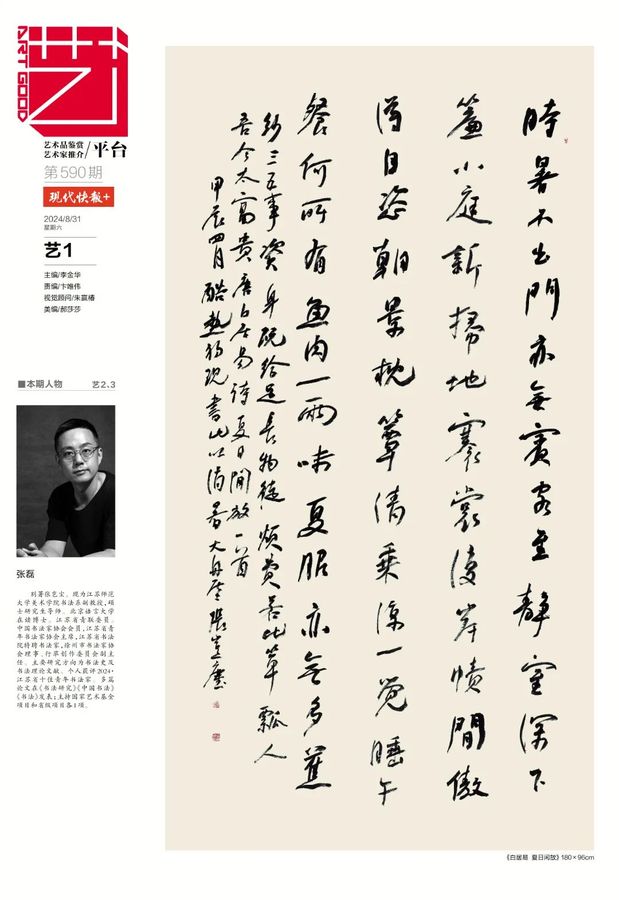 艺
ART GOOD
艺术品鉴赏
艺术家推介/平台
第590期
现代快报+
2024/8/31
星期六
艺1
主编/李金华
责编/卞唯伟
视觉顾问/朱赢椿
美编/郝莎莎
■本期人物 艺2、3
张磊
别署张乞尘，现为江苏师范
大学美术学院书法系副教授，硕
士研究生导师。北京语言大学
在读博士。江苏省青联委员。
中国书法家协会会员，江苏省青
年书法家协会主席，江苏省书法
院特聘书法家，徐州市书法家协
会理事、行草创作委员会副主
任。主要研究方向为书法史及
书法理论文献。个人获评2024·
江苏省十佳青年书法家。多篇
论文在《书法研究》《中国书法》
《书法》发表；主持国家艺术基金
项目和省级项目各1项。
時暑不出門亦無賓客至靜室深下
簾小庭新掃地褰裳復岸幘閒傲
得自恣朝景枕簟清乘涼一覺睡午
餐何所有魚肉一兩味夏服亦無多蕉
紗三五事資身既給足長物徒煩費若比簞瓢人
吾今太富貴 唐白居易詩夏日閒放一首
甲辰四月酷熱猶現書此以消暑大舟
《白居易 夏日闲放》180×96cm